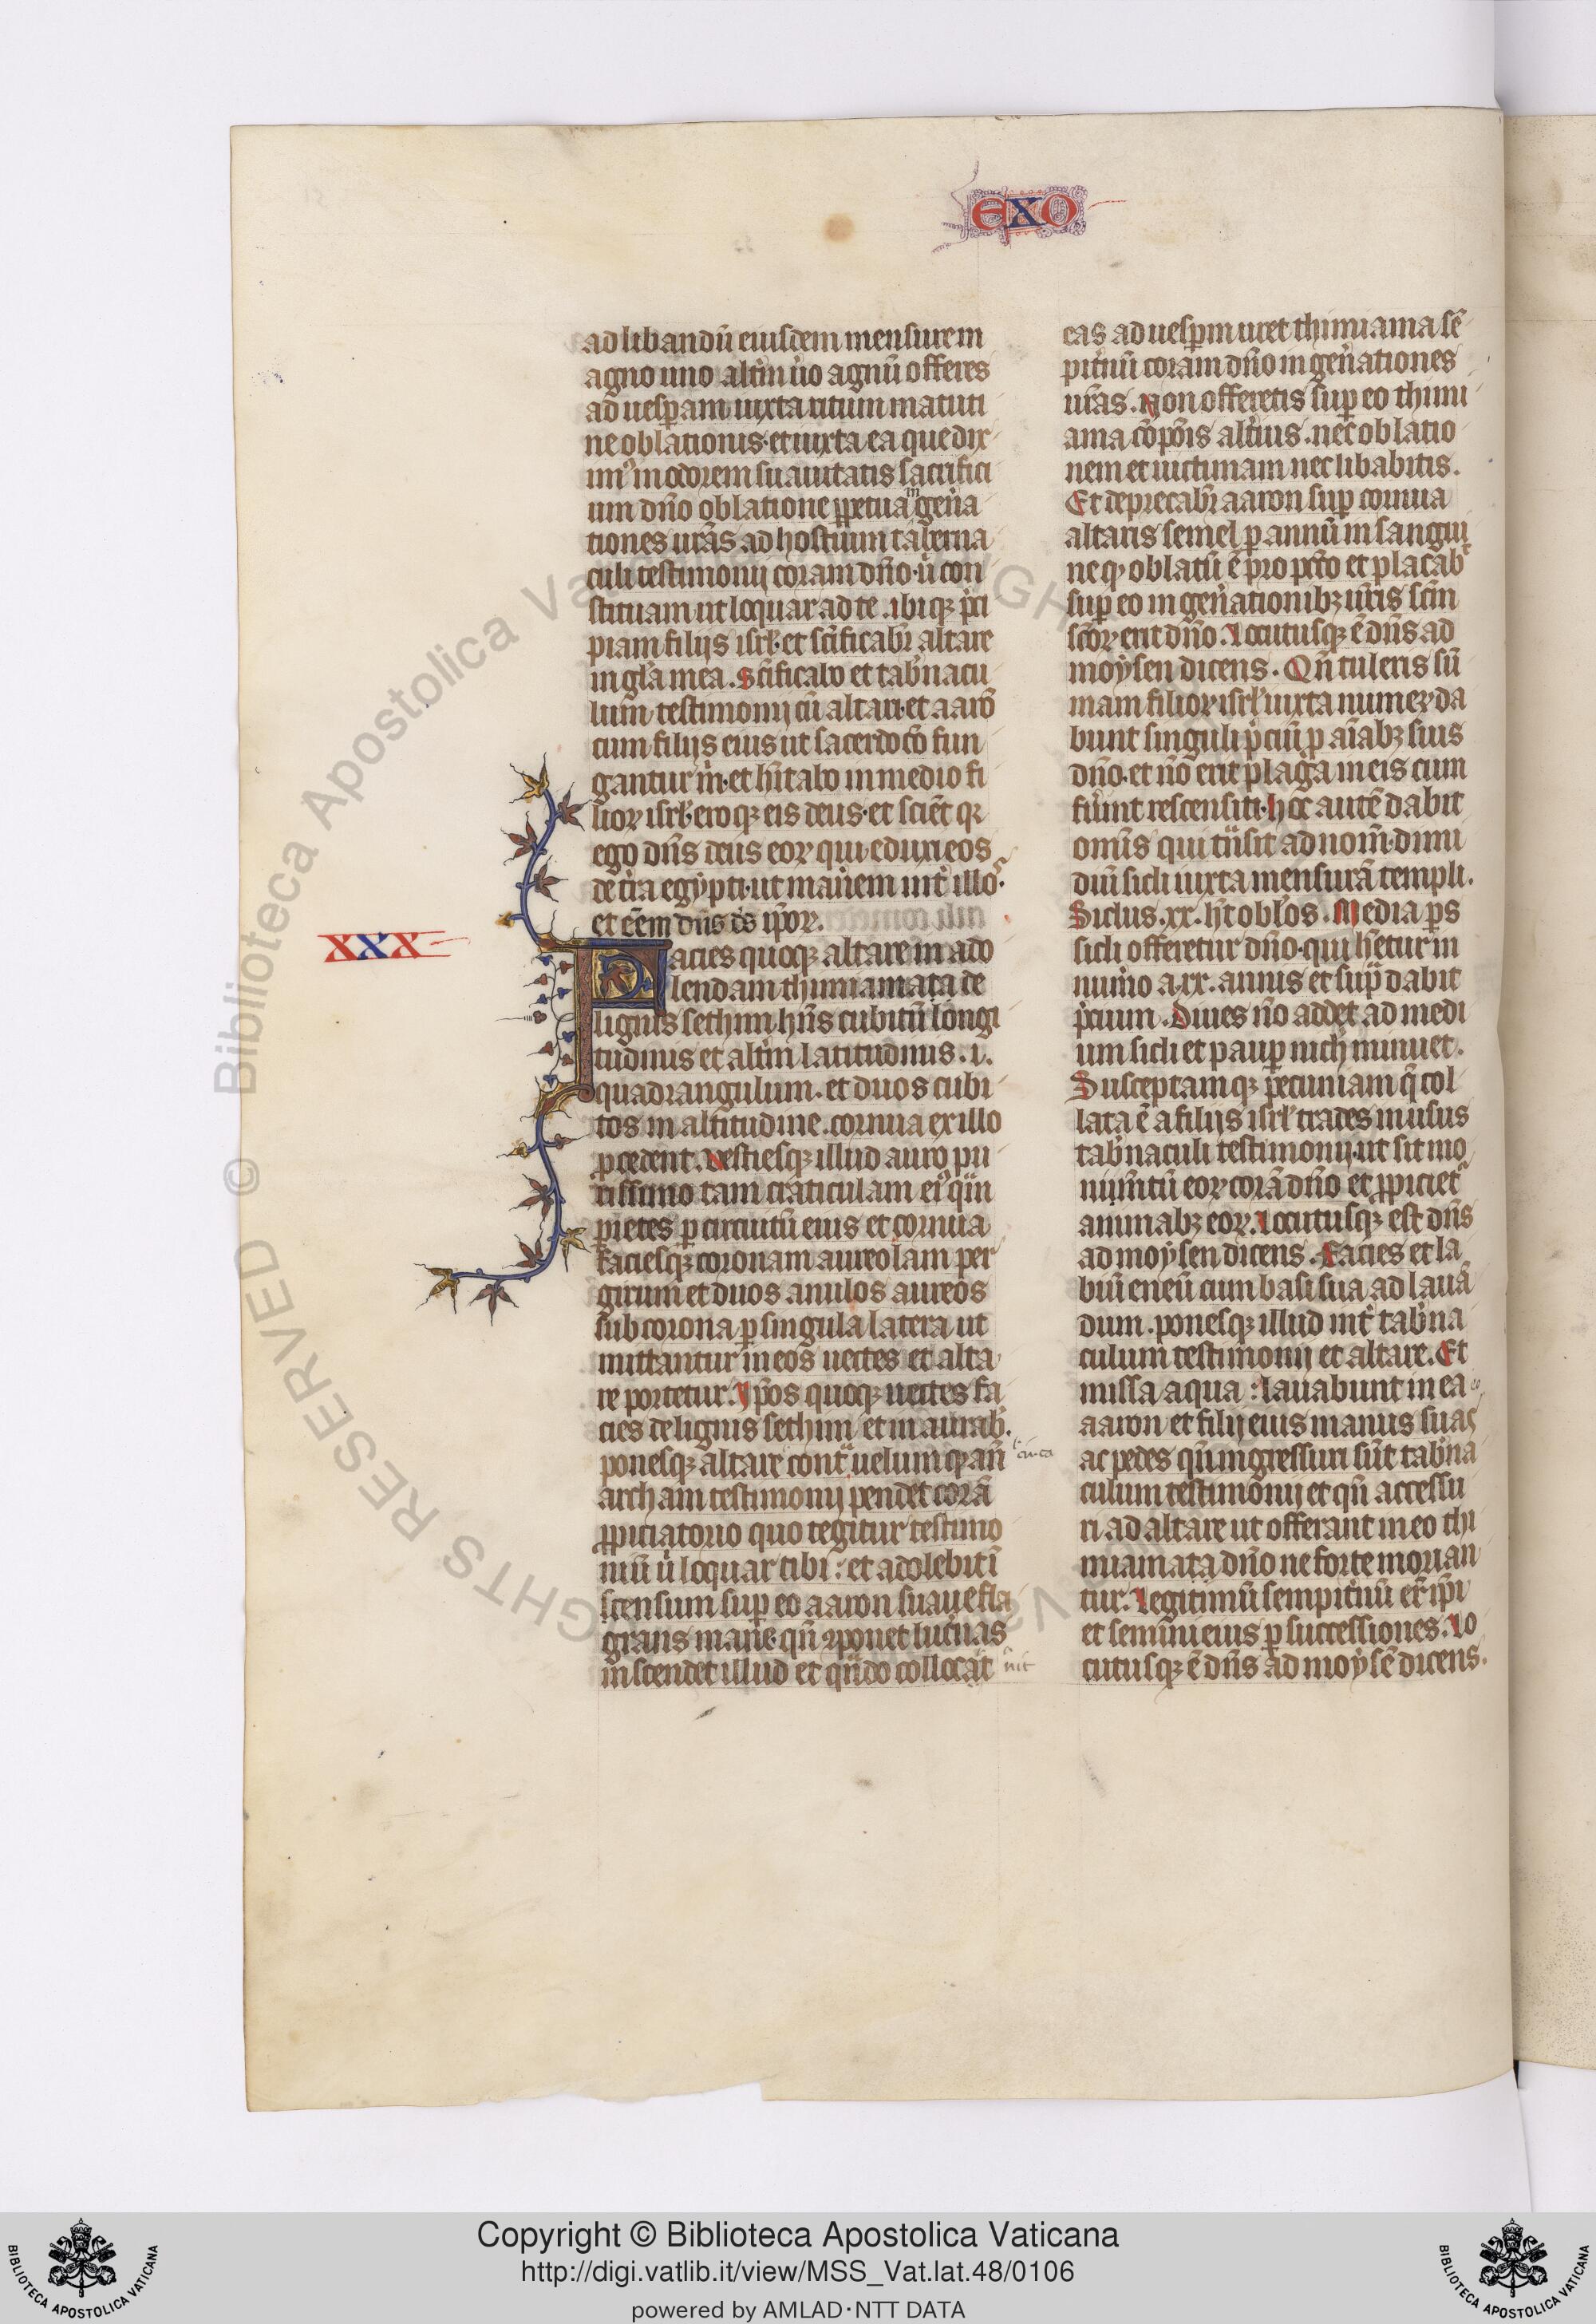 EXO
ad libandū eiusdem mensure in
agno uno altm̄ u̾o agnū offeres
ad uesꝑam iuxta ritum matuti
ne oblationis·et iuxta ea que dix
imꝰ in odorem suauitatis sacrifici
um dn̄o oblatione ꝑpetua in gen̾a
tiones ur̄as ad hostium taberna
culi testimonij coram dn̄o·ut con
stituam ut loquar ad te .ibiqꝫ p̾ci
piam filijs isrl̄·et sc̄ificabr̄ altare
in gl̄a mea .Sc̄ificabo et tab̾nacu
lum testimonij cū altari·et aarō
cum filijs eius ut sacerdocō fun
gantur m̄·et hītabo in medio fi
lioꝝ isrl̄·eroqꝫ eis deus·et sciēt qꝛ
ego dn̄s deus eoꝝ qui eduxi eos
de t̾ra egypti·ut manerem int̾ illoˢ·
et eēm dn̄s dˢ ip̄oꝝ.
XXX
Facies quoqꝫ altare in ado
lendam thimiamata de
lignis sethim·hn̄s cubitū longi
tudinis et altm̄ latitudinis .i.
quadrangulum· et duos cubi
tos in altitudine .cornua ex illo
ꝓcedent .Vestiesqꝫ illud auro pu
rissimo tam craticulam eiꝰ qͣm
parietes ꝑ circuitū eius et cornua
faciesqꝫ coronam aureolam per
girum et duos anulos aureos
sub corona ꝑ singula latera ut
mittantur in eos uectes et alta
re portetur. Ip̄os quoqꝫ uectes fa
cies de lignis sethim et in aurab̾.
ponesqꝫ altare contͣ uelum qꝫ an̄
archam testimonij pendet corā
ꝓpiciatorio quo tegitur testimo
niū ub̾ loquar tibi : et adolebit ī
scensum suꝑ eo aaron suaue fla
grans mane·qn̄ ꝯponet luc̾nas
inscendet illud et qn̄do collocat
eas ad uesꝑm uret thimiama sē
pit̾nū coram dn̄o in gen̾ationes
ur̄as .Non offeretis suꝑ eo thimi
ama cōpōis alt̾ius .nec oblatio
nem et uictimam nec libabitis .
Et deprecabr̄ aaron suꝑ cornua
altaris semel ꝑ annū in sangui
ne qꝫ oblatū ē pro pctō et placab̾
suꝑ eo in gen̾ationibꝫ ur̄is scm̄
scōꝝ erit dn̄o .Locutusqꝫ ē dn̄s ad
moysen dicens . Qn̄ tuleris sū
mam filioꝝ isrl̄ iuxta numeꝝ da
bunt singuli p̾ciū ꝑ aīabꝫ suis
dn̄o·et nō erit plaga in eis cum
fu̾int rescensiti·hoc autē dabit
omīs qui tͣnsit ad nom̄·dimi
diū sicli iuxta mensurā templi .
Siclus .xx. h̄t obłos .Media ꝑs
sicli offeretur dn̄o·qui h̄etur in
num̾o a .xx. annis et supͣ dabit
p̾cium .Diues nō addet ad medi
um sicli et pauꝑ nich̾ minuet .
Susceptamqꝫ pecuniam q̄ col
lata ē a filijs isrl̄ trades in usus
tab̾naculi testimonij·ut sit mo
nim̄tū eoꝝ corā dn̄o et ꝓpicietͬ
animabꝫ eoꝝ. Locutusqꝫ est dn̄s
ad moysen dicens .Facies et la
biū eneū cum basi sua ad lauā
dum .ponesqꝫ illud int̾ tab̾na
culum testimonij et altare. Et
missa aqua : lauabunt in ea
aaron et filij eius manus suas
ac pedes qn̄ ingressuri sūt tab̾na
culum testimonij et qn̄ accessu
ri ad altare ut offerant in eo thi
miamata dn̄o ne forte morian
tur. Legitimū sempit̾nū er̄ ip̄i
et semini eius ꝑ successiones .Lo
cutusqꝫ ē dn̄s ad moysē dicens.
circa
© Biblioteca Apostolica Vaticana
Copyright © Biblioteca Apostolica Vaticana
http://digi.vatlib.it/view/MSS_Vat.lat.48/0106
powered by AMLAD·NTT DATA
BIBLIOTECA APOSTOLICA VATICANA
BIBLIOTECA APOSTOLICA VATICANA